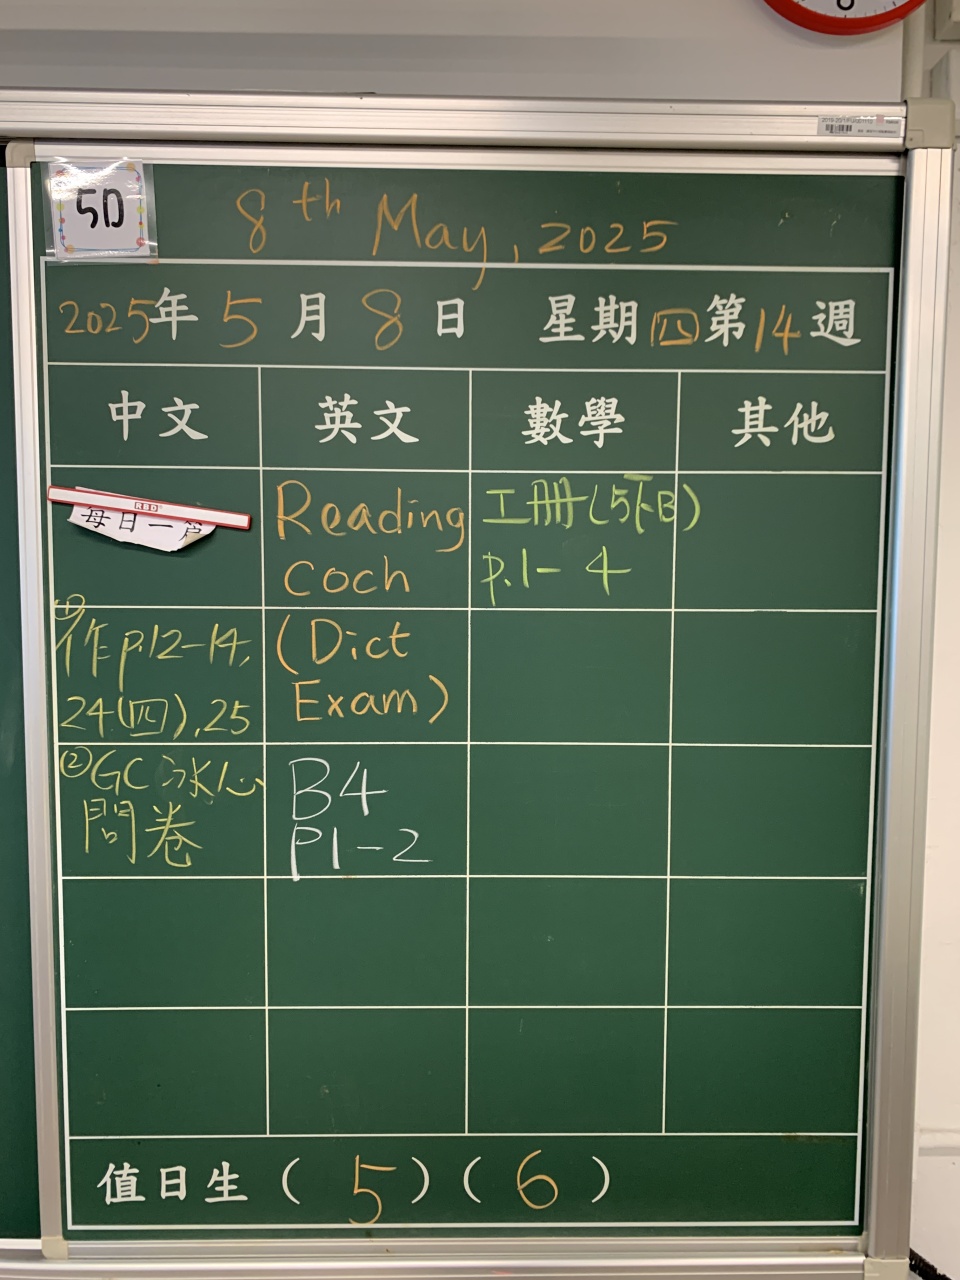 5D
8th May, 2025
2025年5月8日 星期四第14週
中文 英文 數學 其他
RBD
每日一篇
Reading
Coch
工冊(5下B)
p.1-4
①作p.12-14,
24(四),25
(Dict
Exam)
②GC冰心
問卷
B4
P1-2
值日生(5)(6)